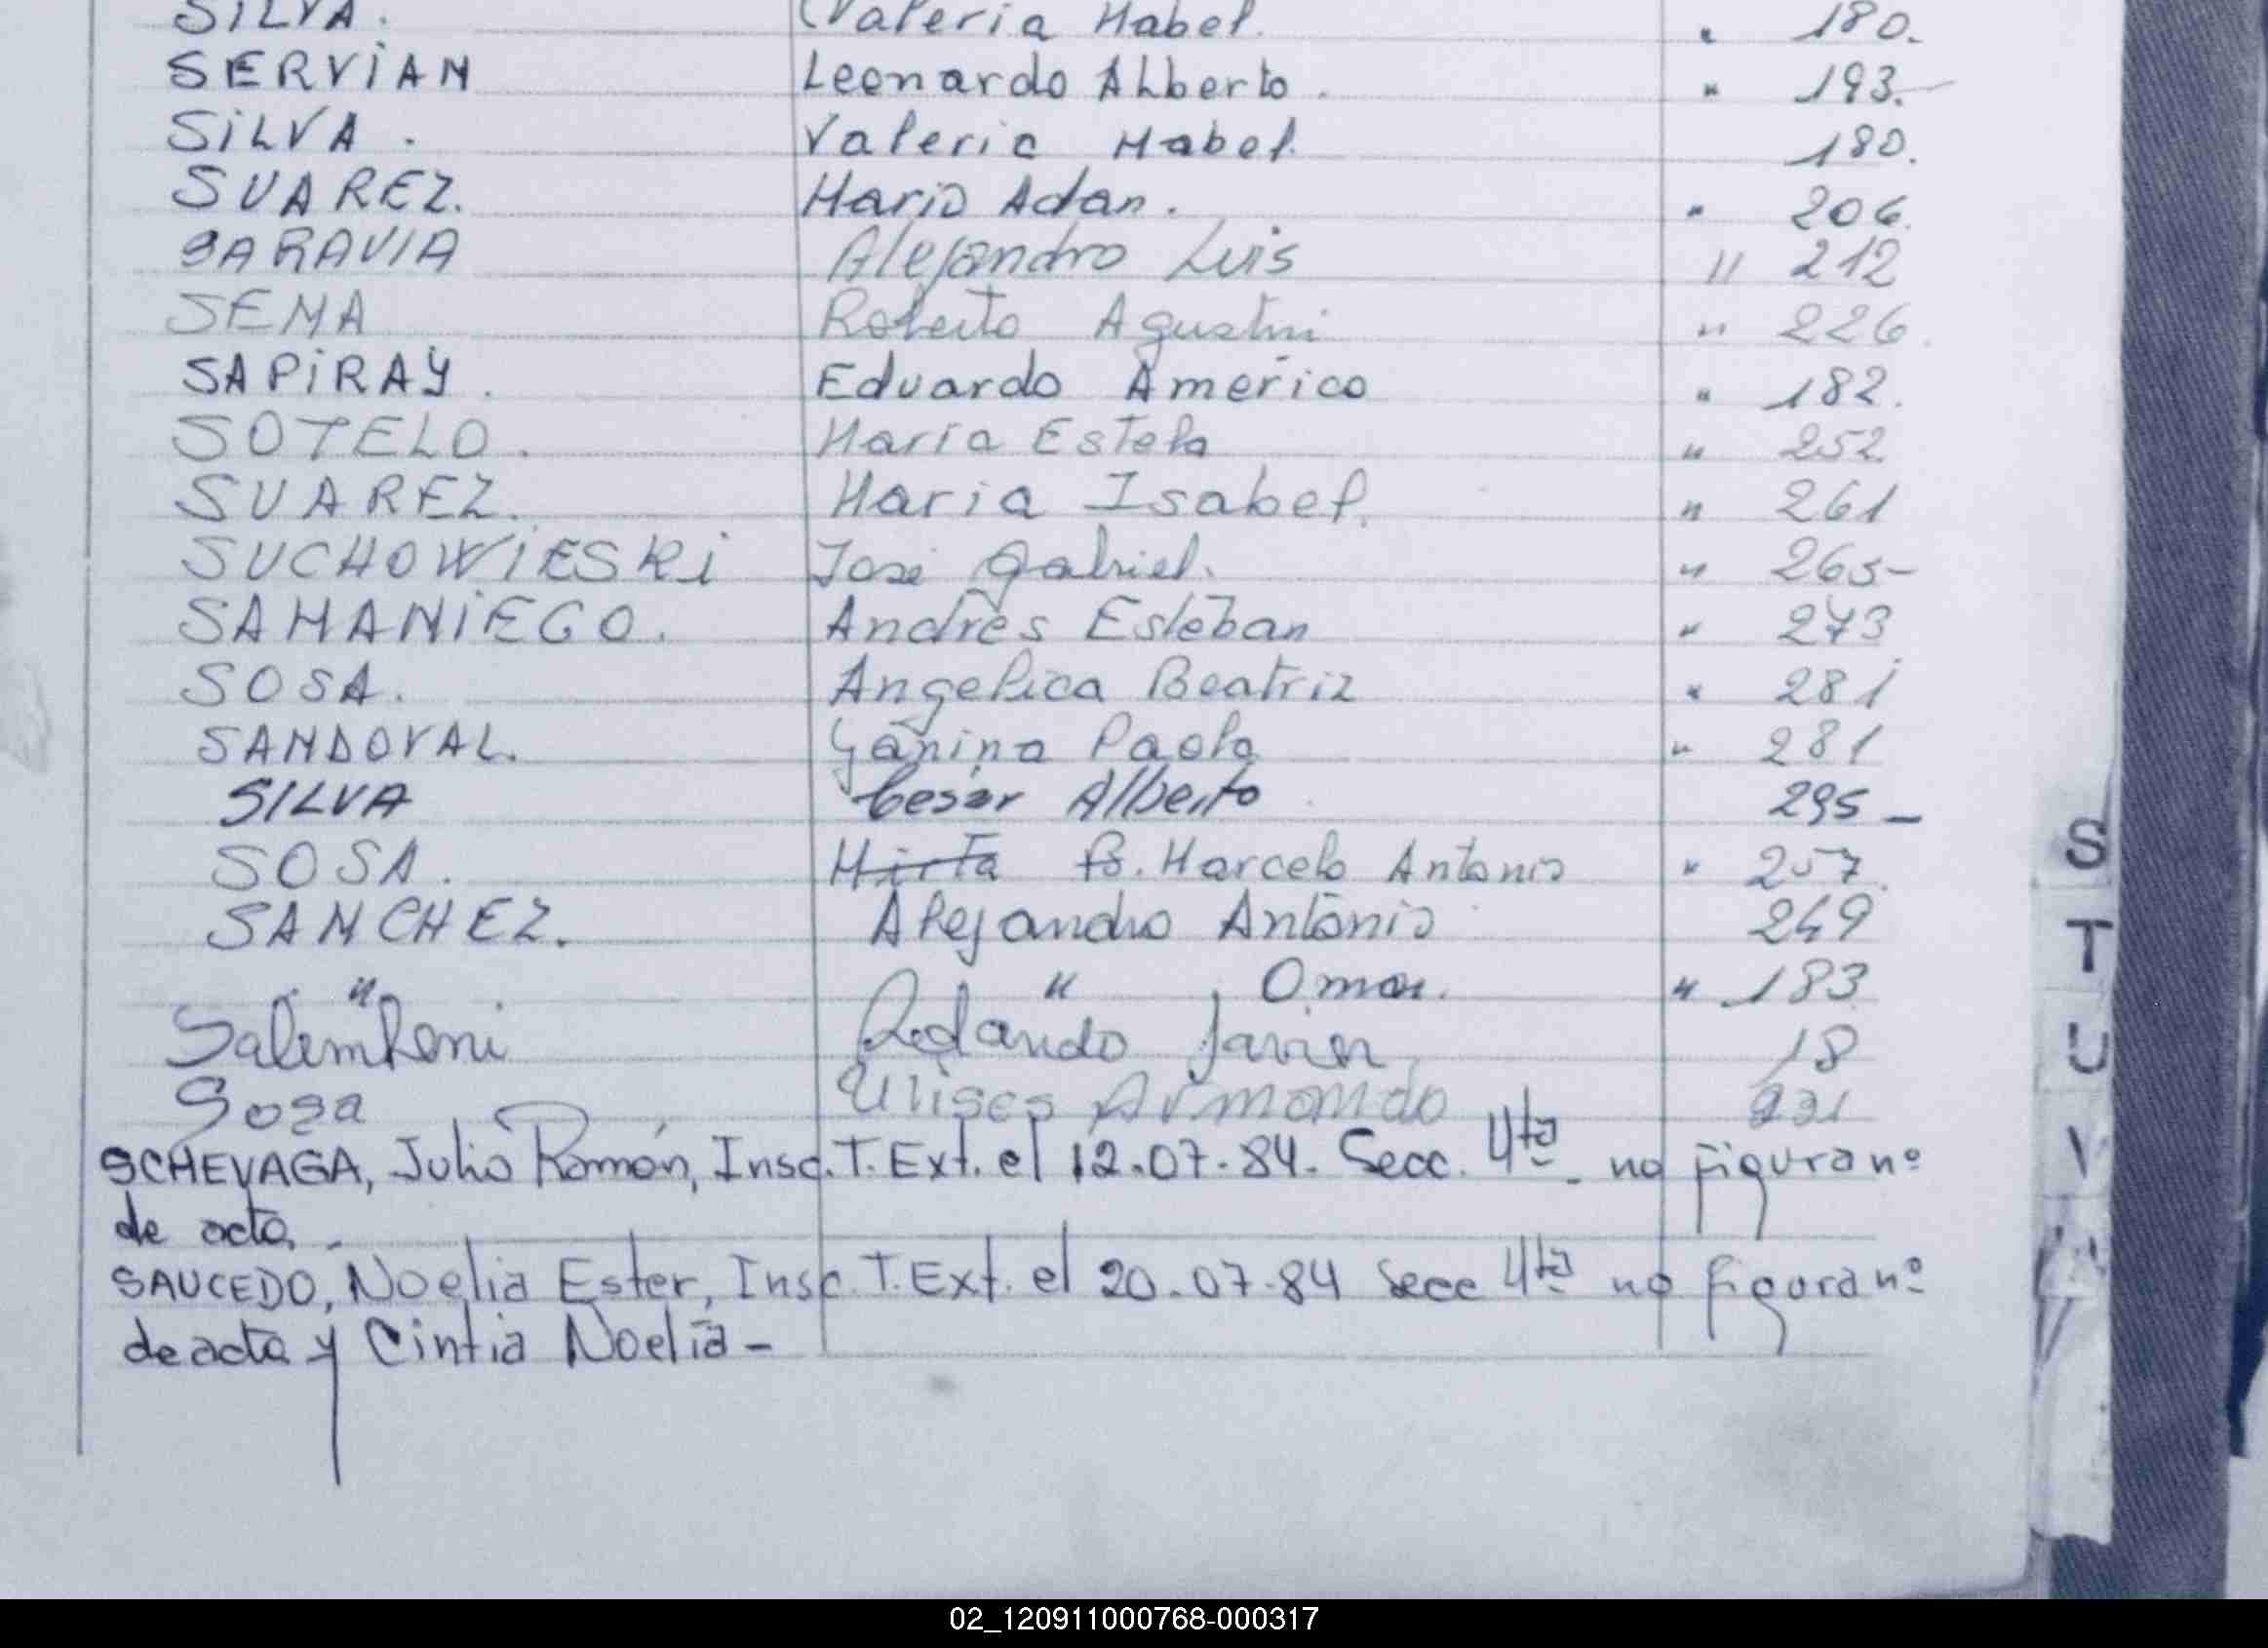 SILVA. Valeria Mabel. " 180.
SERVIAN Leonardo Alberto. " 193.-
SILVA. Valeria Mabel. 180.
SUAREZ. Mario Adan. " 206.
SARAVIA Alejandro Luis " 212
SEMA Roberto Agustin " 226.
SAPIRAY. Eduardo Americo " 182.
SOTELO. Maria Estela " 252
SUAREZ. Maria Isabel. " 261
SUCHOWIESKI José Gabriel. " 265-
SAMANIEGO. Andrés Esteban " 273
SOSA. Angelica Beatriz " 281
SANDOVAL. Yanina Paola " 281
SILVA Cesar Alberto 295-
SOSA. Mirta B. Marcelo Antonio " 257.
SANCHEZ. Alejandro Antonio 249
" " Omar. " 183
Rolando Javier 18
Sosa Ulises Armando 231
SCHEVAGA, Julio Román, Insc. T. Ext. el 12-07-84. Secc. 4ta - no figura nº
de acta. -
SAUCEDO, Noelia Ester, Insc. T. Ext. el 20-07-84 Secc 4ta no figura nº
de acta y Cintia Noelia -
S
T
U
V
02_120911000768-000317